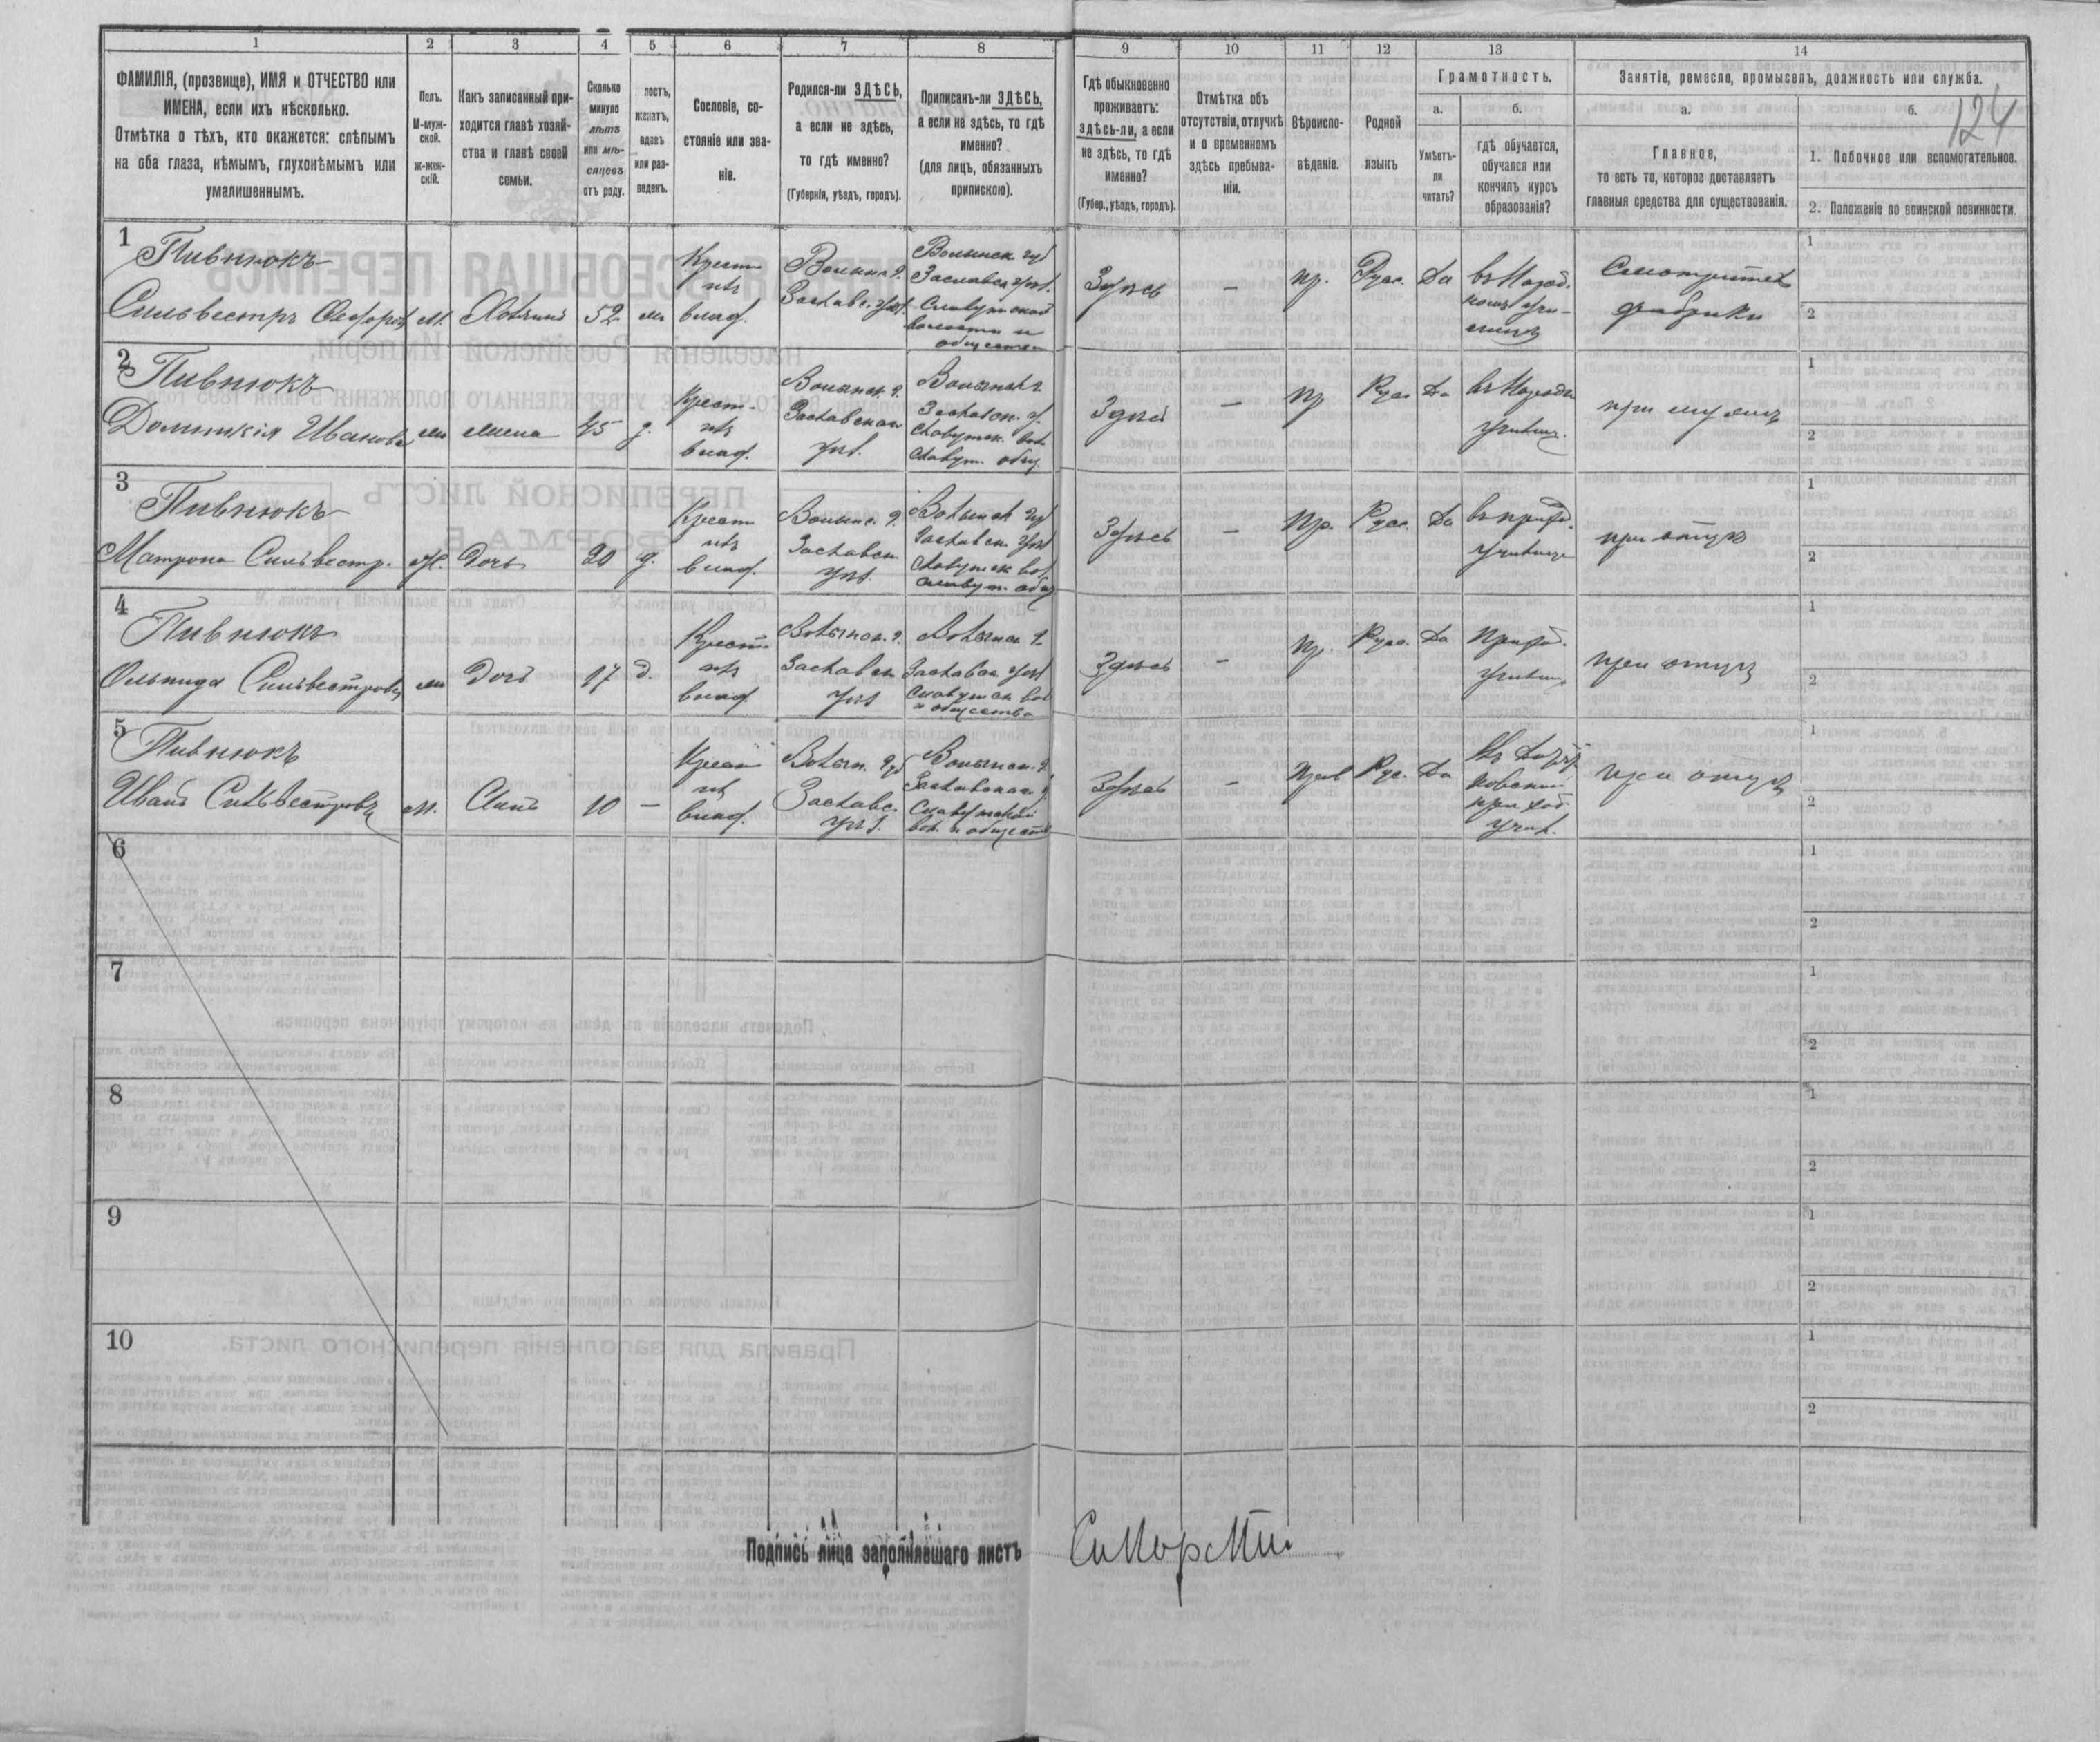 1 2 3 4 5 6 7 8 9 10 11 12 13 14
ФАМИЛІЯ, (прозвище), ИМЯ и ОТЧЕСТВО или
ИМЕНА, если ихъ нѣсколько.
Отмѣтка о тѣхъ, кто окажется: слѣпымъ
на оба глаза, нѣмымъ, глухонѣмымъ или
умалишеннымъ.
Полъ.
М-муж-
ской.
ж-жен-
скій.
Какъ записанный при-
ходится главѣ хозяй-
ства и главѣ своей
семьи.
Сколько
минуло
лѣтъ
или мѣ-
сяцевъ
отъ роду.
лостъ,
женатъ,
вдовъ
или раз-
веденъ.
Сословіе, со-
стояніе или зва-
ніе.
Родился-ли ЗДѢСЬ,
а если не здѣсь,
то гдѣ именно?
(Губернія, уѣздъ, городъ).
Приписанъ-ли ЗДѢСЬ,
а если не здѣсь, то гдѣ
именно?
(для лицъ, обязанныхъ
припискою).
Гдѣ обыкновенно
проживаетъ:
здѣсь-ли, а если
не здѣсь, то гдѣ
именно?
(Губер., уѣздъ, городъ).
Отмѣтка объ
отсутствіи, отлучкѣ
и о временномъ
здѣсь пребыва-
ніи.
Вѣроиспо-
вѣданіе.
Родной
языкъ
Грамотность.
а.
Умѣетъ-
ли
читать?
б.
гдѣ обучается,
обучался или
кончилъ курсъ
образованія?
Занятіе, ремесло, промыселъ, должность или служба.
а.
Главное,
то есть то, которое доставляетъ
главныя средства для существованія.
б.
124
1. Побочное или вспомогательное.
2. Положеніе по воинской повинности.
1
Пивнюкъ
Сильвестръ
М.
Хозяинъ
52
Крест
изъ
влад.
Волынс. г.
Заславс. уѣз.
Волынск губ
Заславск уѣз.
Славутской
волости и
общества
Здѣсь
—
пр.
Русс.
Да
училищѣ
фабрики
1
2
2
Пивнюкъ
Домникія Иванова
жена
45
Крест-
изъ
влад.
Волынск. г.
Заславскаго
уѣз.
Волынск г.
Славутск. вол.
Славут. общ.
Здѣсь
—
Пр
Русс
Да
училищ.
при мужѣ
1
2
3
Пивнюкъ
Матрона Сильвестр.
Ж.
Дочь
20
д.
Крест
изъ
влад.
Волынс. г.
Заславск
уѣз.
Волынск губ
Заславск. уѣз
Славутск вол.
Славут. общ
Здѣсь
—
Пр.
Русс.
Да
въ приход.
училищѣ
при отцѣ
1
2
4
Пивнюкъ
Сильвестрова
Дочь
17
д.
Крест.
изъ
влад.
Волынск. г.
Заславск
уѣз
Волынск г.
Заславск. уѣз
Славутск вол
и общества
Здѣсь
—
Пр.
Русс.
Да
Приход.
училищ.
при отцѣ
1
2
5
Пивнюкъ
Иванъ Сильвестровъ
М.
Сынъ
10
—
Крест
изъ
влад.
Волын. губ
Заславс.
уѣз.
Волынск. г.
Заславскаго у.
Славутской
вол. и общества
Здѣсь
—
Прав
Рус.
Да
приход
учил.
при отцѣ
1
2
6
1
2
7
1
2
8
1
2
9
1
2
10
1
2
Подпись лица заполнявшаго листъ